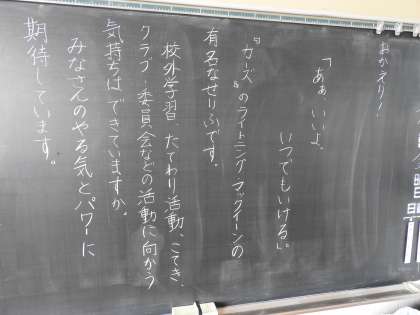 おかえり！
「あぁ、いいよ。
いつでもいける。」
『カーズ』のライトニングマックイーンの
有名なせりふです。
校外学習、たてわり活動、こてき、
クラブ・委員会などの活動に向かう
気持ちは、できていますか。
みなさんのやる気とパワーに
期待しています。